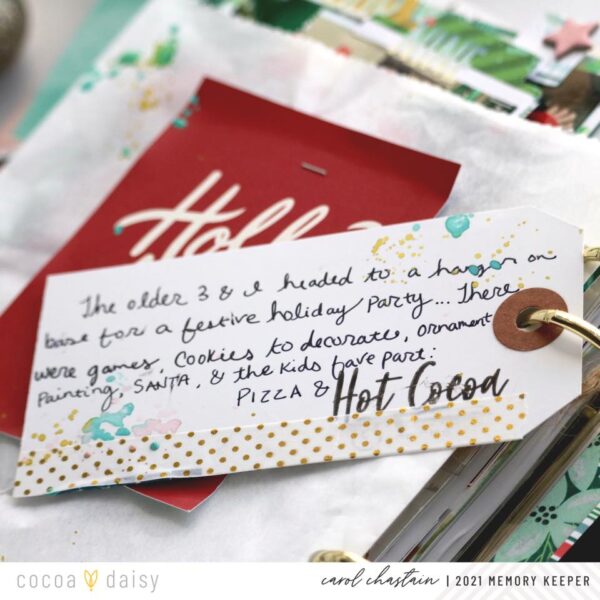 Holl
The older 3 & I headed to a hangar on
base for a festive holiday Party... There
were games, Cookies to decorate, ornament
Painting, SANTA, & the Kids fave part:
PIZZA & Hot Cocoa
cocoa daisy
carol chastain | 2021 MEMORY KEEPER